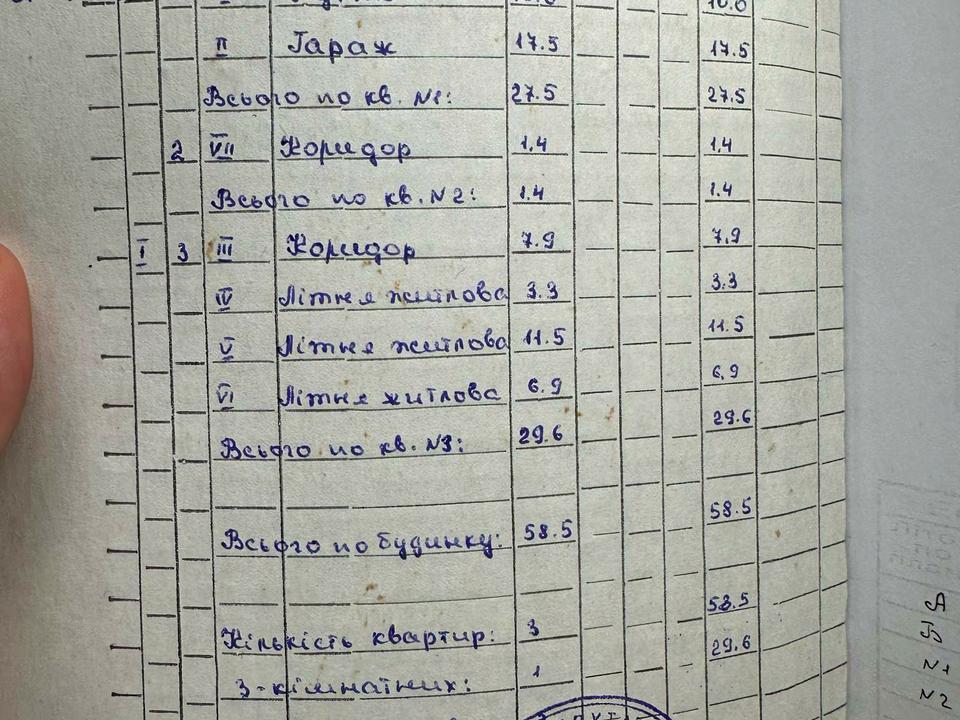 II Гараж 17.5 17.5
Всього по кв. N1: 27.5 27.5
2 VII Коридор 1.4 1.4
Всього по кв. N2: 1.4 1.4
I 3 III Коридор 7.9 7.9
IV Літня житлова 3.3 3.3
V Літня житлова 11.5 11.5
VI Літня житлова 6.9 6.9
Всього по кв. N3: 29.6 29.6
Всього по будинку: 58.5 58.5
58.5
Кількість квартир: 3 29.6
3-кімнатних: 1
N1
N2